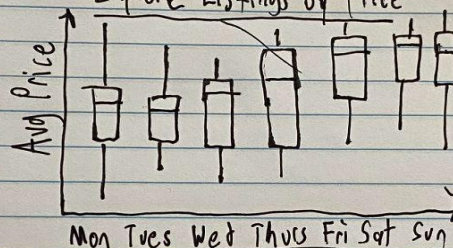 Listings by Price
Avg Price
Mon Tues Wed Thurs Fri Sat Sun